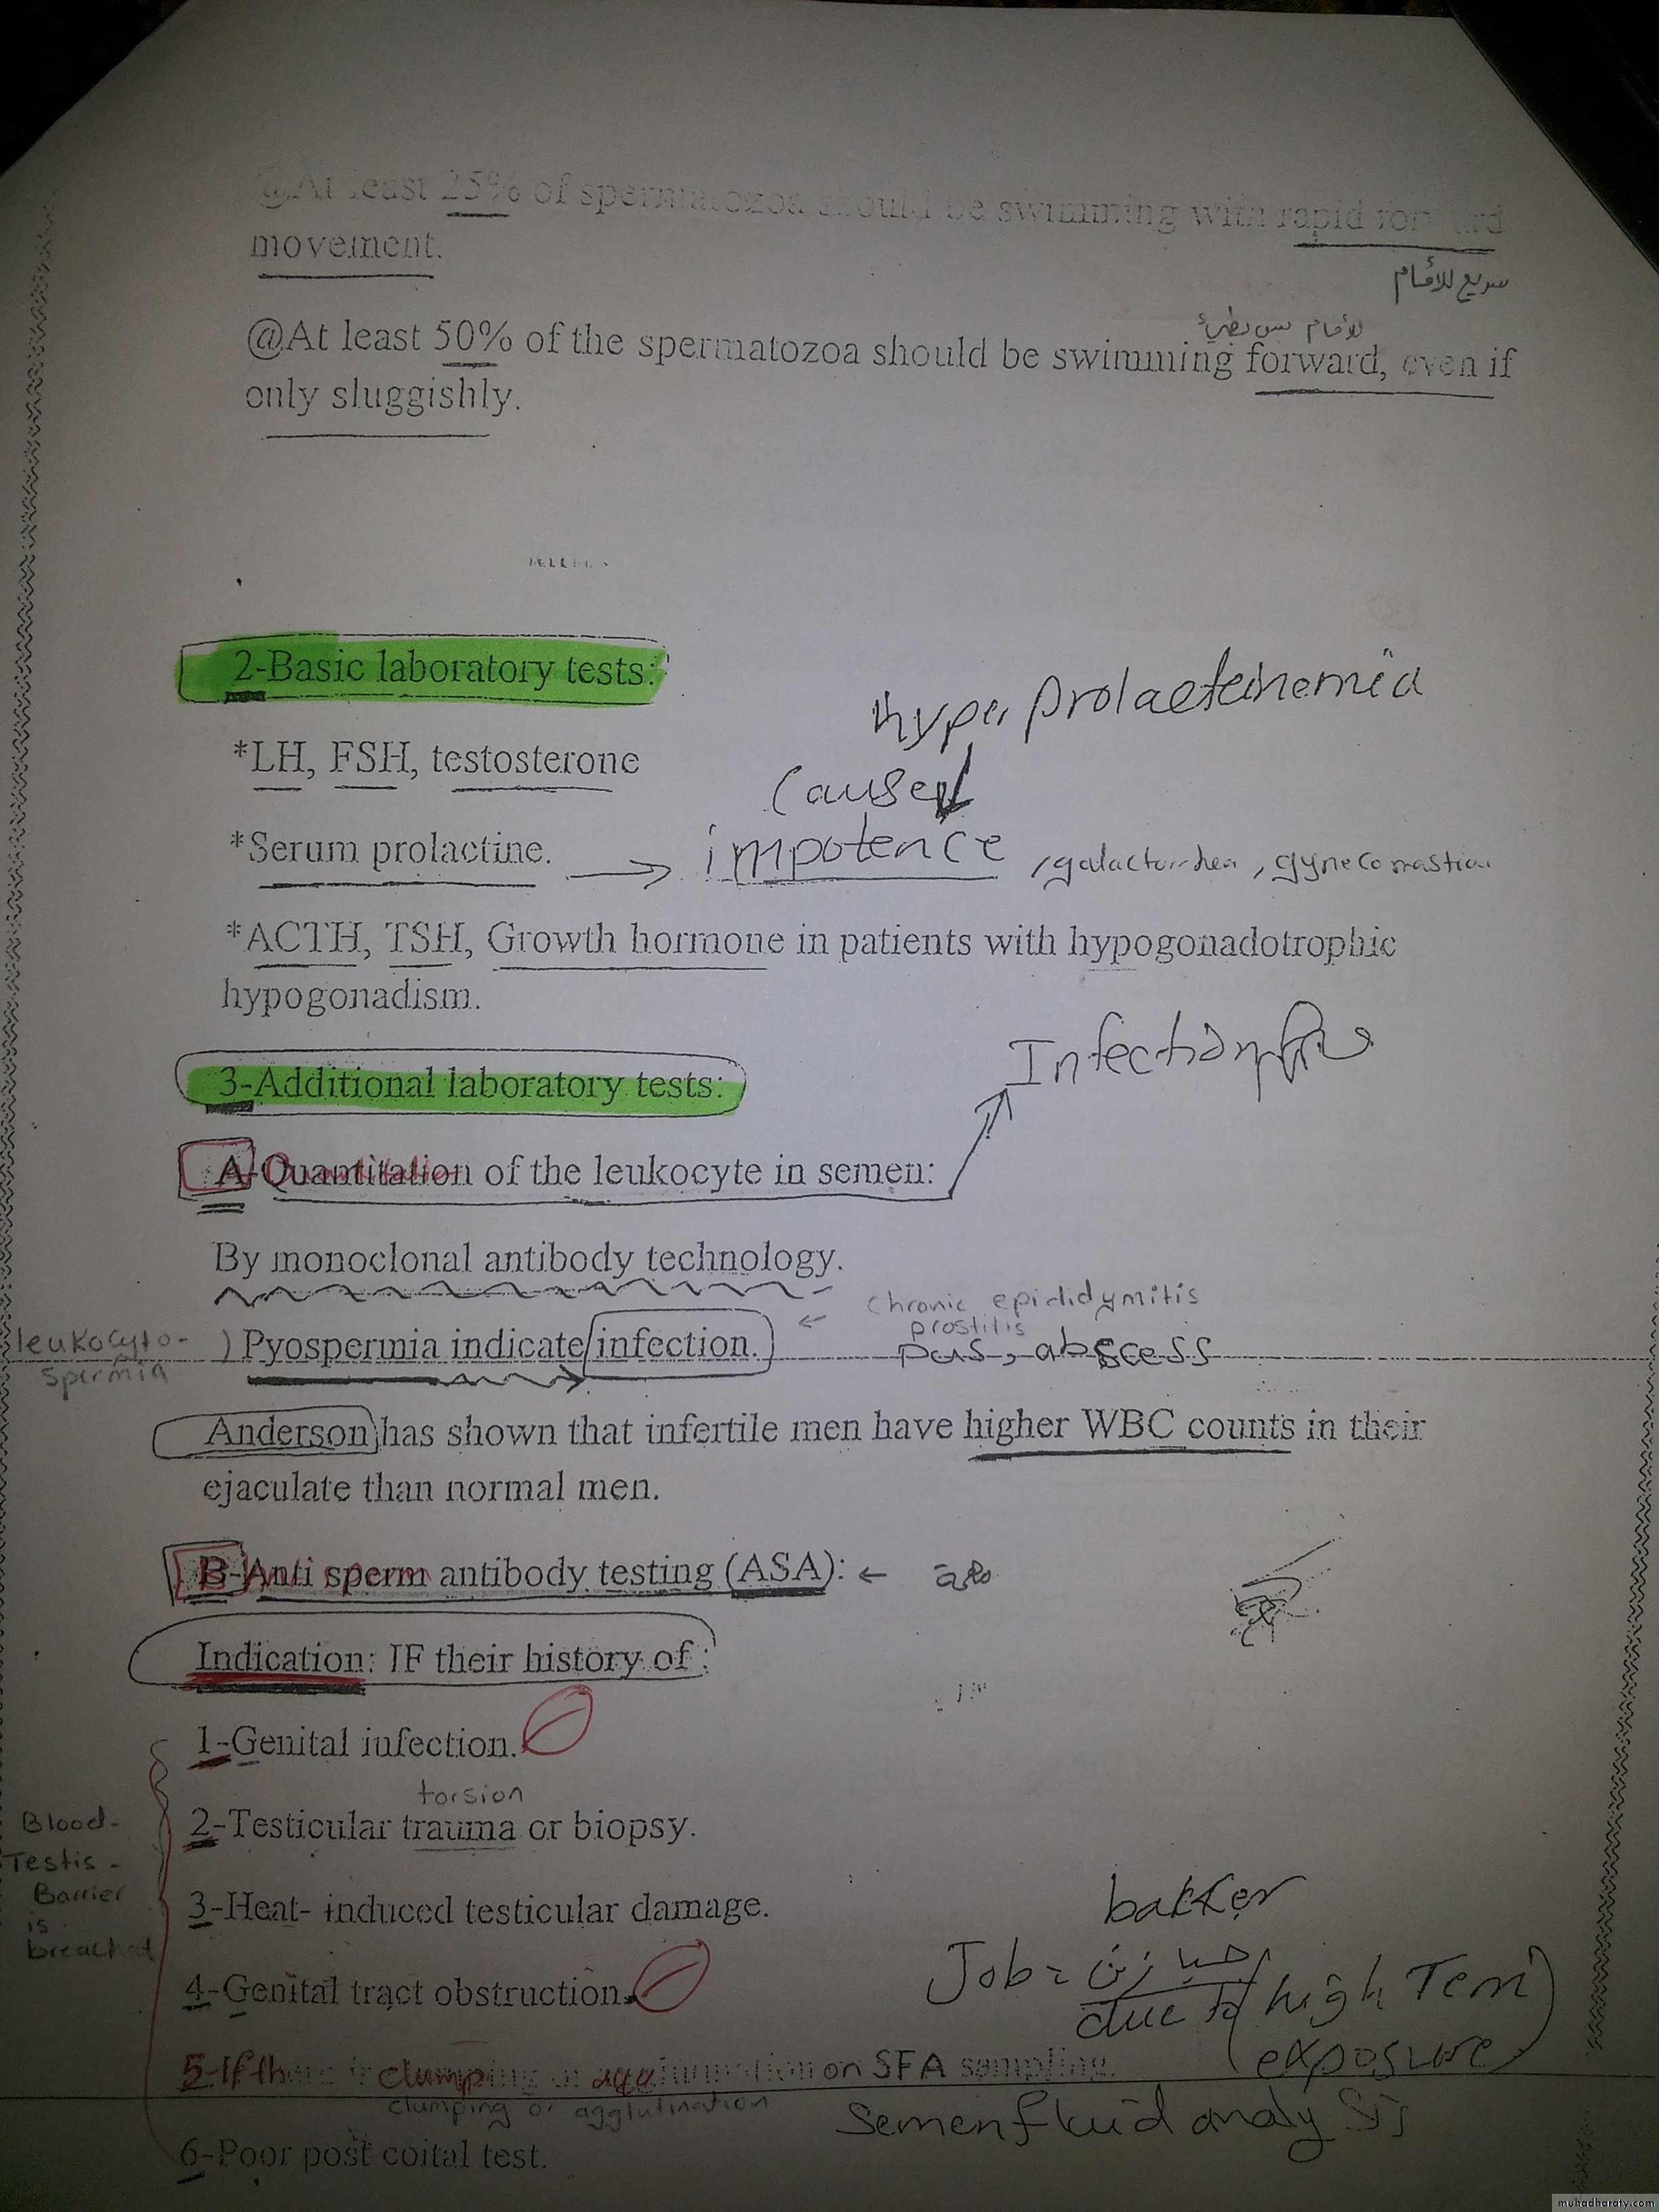 @At least 25% of spermatozoa should be swimming with rapid forward
movement.
سريع للأمام
للأمام بس بطيء
@At least 50% of the spermatozoa should be swimming forward, even if
only sluggishly.
2-Basic laboratory tests:
hyper prolacteinemia
*LH, FSH, testosterone
cause
*Serum prolactine. → impotence , galactorrhea , gynecomastia
*ACTH, TSH, Growth hormone in patients with hypogonadotrophic
hypogonadism.
Infection
3-Additional laboratory tests:
A-Quantitation of the leukocyte in semen:
By monoclonal antibody technology.
chronic epididymitis
prostitis
leukocyto-
spermia
Pyospermia indicate infection. pus, abscess
Anderson has shown that infertile men have higher WBC counts in their
ejaculate than normal men.
B-Anti sperm antibody testing (ASA): ←
Indication: IF their history of :
1-Genital infection.
torsion
2-Testicular trauma or biopsy.
Blood-
Testis-
Barrier
is
breached
3-Heat- induced testicular damage.
bakker
Job =
due to high Tem
exposure
4-Genital tract obstruction.
5-If there is clumping or agglutination on SFA sampling.
clumping or agglutination
Semen fluid analysis
6-Poor post coital test.
muhadharaty.com